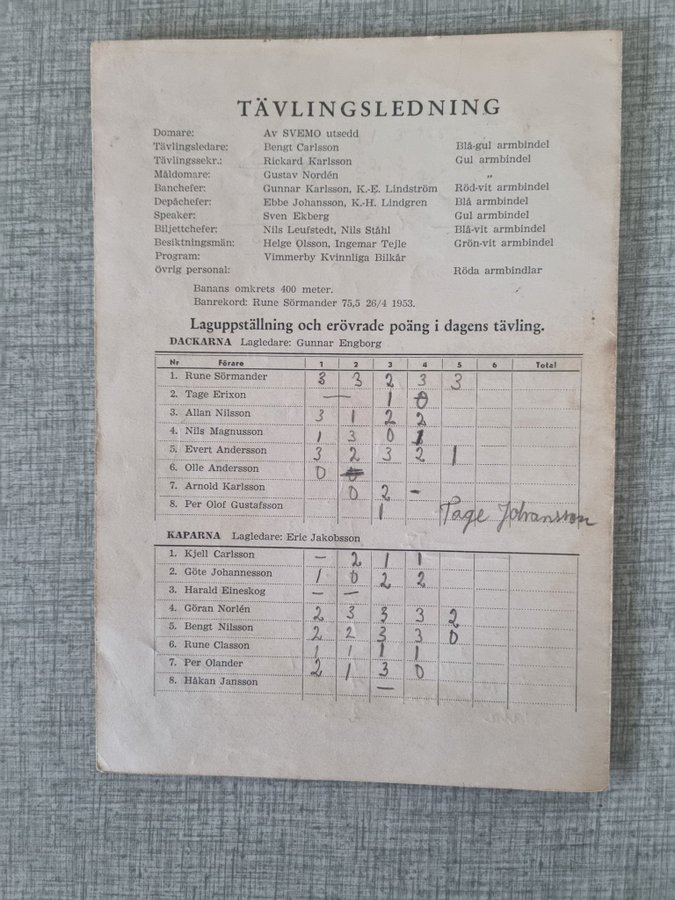 TÄVLINGSLEDNING
Domare: Av SVEMO utsedd
Tävlingsledare: Bengt Carlsson Blå-gul armbindel
Tävlingssekr.: Rickard Karlsson Gul armbindel
Måldomare: Gustav Nordén „
Banchefer: Gunnar Karlsson, K.-E. Lindström Röd-vit armbindel
Depåchefer: Ebbe Johansson, K.-H. Lindgren Blå armbindel
Speaker: Sven Ekberg Gul armbindel
Biljettchefer: Nils Leufstedt, Nils Ståhl Blå-vit armbindel
Besiktningsmän: Helge Olsson, Ingemar Tejle Grön-vit armbindel
Program: Vimmerby Kvinnliga Bilkår
övrig personal: Röda armbindlar
Banans omkrets 400 meter.
Banrekord: Rune Sörmander 75,5 26/4 1953.
Laguppställning och erövrade poäng i dagens tävling.
DACKARNA Lagledare: Gunnar Engborg
Nr Förare 1 2 3 4 5 6 Total
1. Rune Sörmander 3 3 2 3 3
2. Tage Erixon — 1 0
3. Allan Nilsson 3 1 2 2
4. Nils Magnusson 1 3 0 1
5. Evert Andersson 3 2 3 2 1
6. Olle Andersson 0
7. Arnold Karlsson 0 2 -
8. Per Olof Gustafsson 1 Tage Johansson
KAPARNA Lagledare: Eric Jakobsson
1. Kjell Carlsson – 2 1 1
2. Göte Johannesson 1 0 2 2
3. Harald Eineskog – –
4. Göran Norlén 2 3 3 3 2
5. Bengt Nilsson 2 2 3 3 0
6. Rune Classon 1 1 1 1
7. Per Olander 2 1 3 0
8. Håkan Jansson –